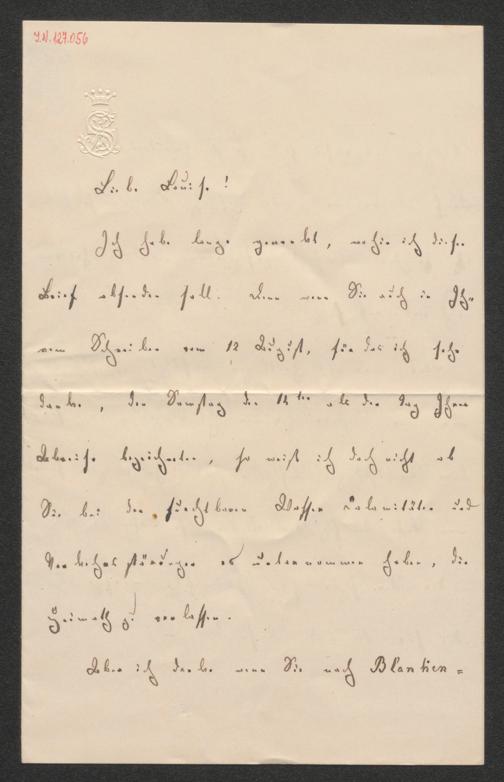 I.N. 127.056
Liebe Louise!
Ich habe lange gewartet, wohin ich diesen
Brief absenden soll. Denn wenn Sie auch in Ih-
rem Schreiben vom 12 August, für das ich sehr
danke, den Samstag den 14ten als den Tag Ihrer
Abreise bezeichneten, so weiß ich doch nicht ob
Sie bei den furchtbaren Wasser Calamitäten und
Verkehrsstörungen es unternommen haben, die
Heimath zu verlassen.
Aber ich denke wenn Sie nach Blanken=